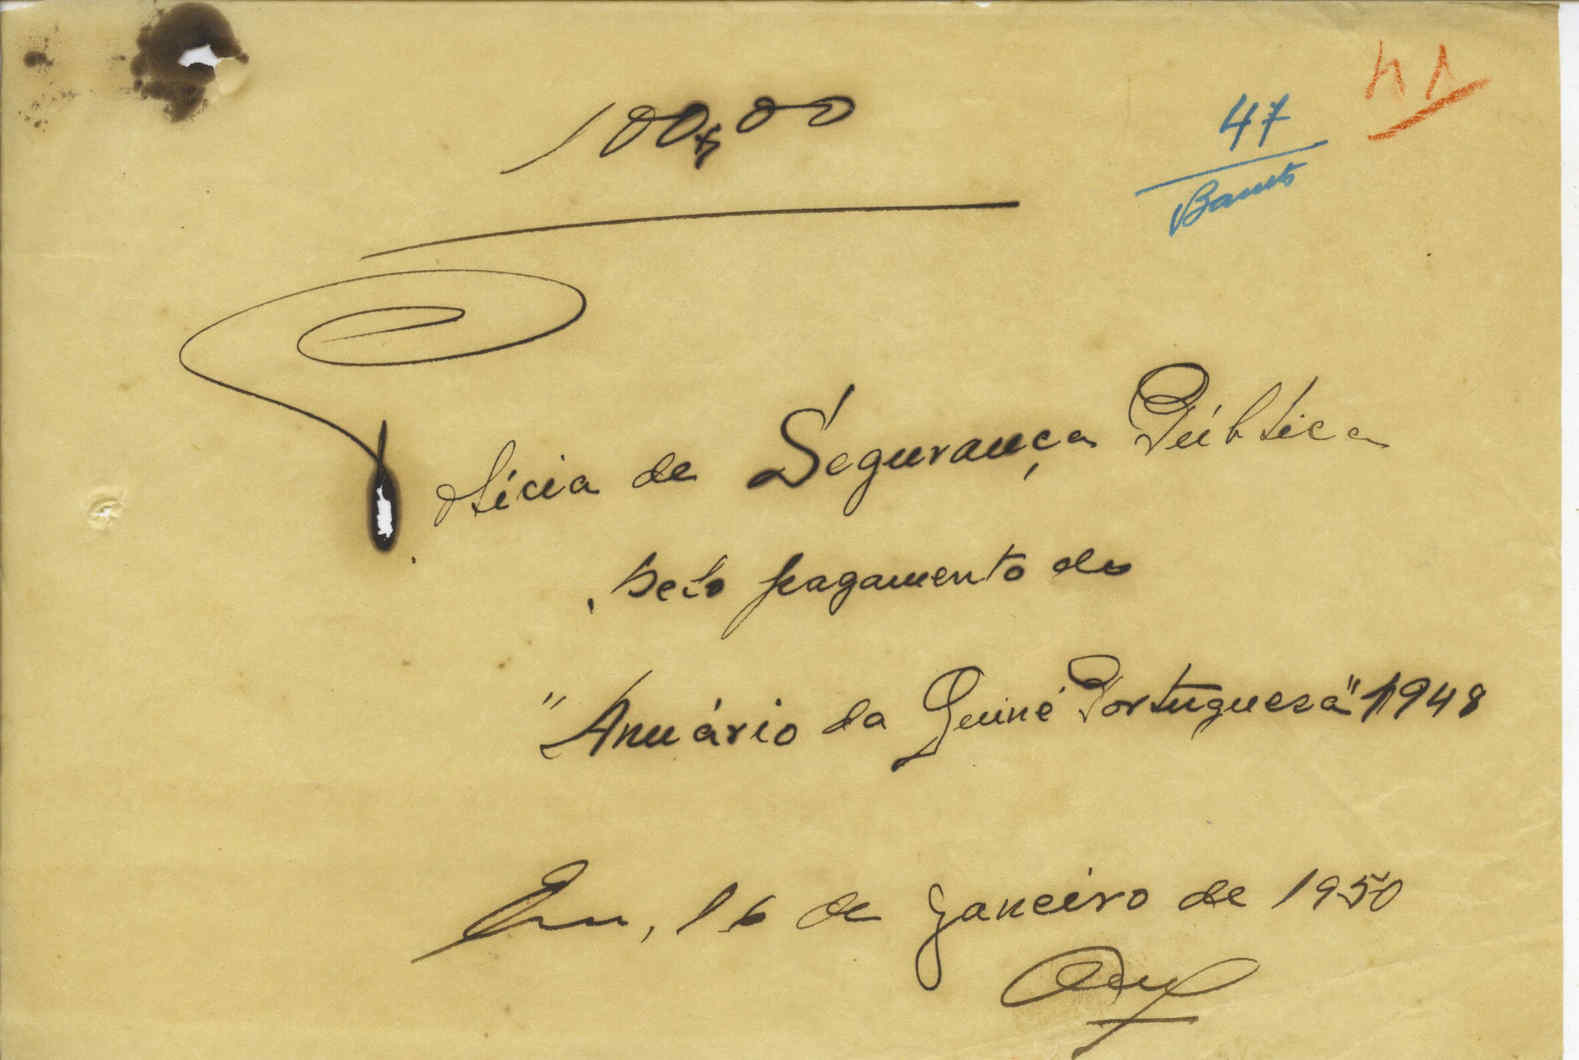 100$00
47
41
Polícia de Segurança Pública
pelo pagamento do
"Anuário da Guiné Portuguesa" 1948
Em, 16 de Janeiro de 1950